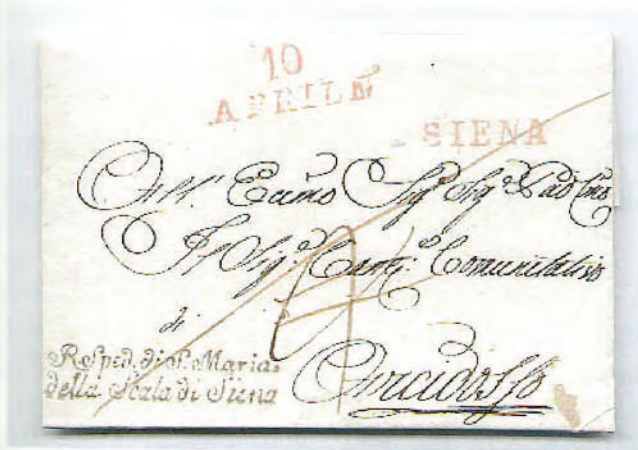 10
APRILE
SIENA
All' Eccmo Sigr Sigr Pad Cmo
Il Sigr Canc. Comunitativo
di
R. Sped. di S. Maria
della Scala di Siena
Arcidosso